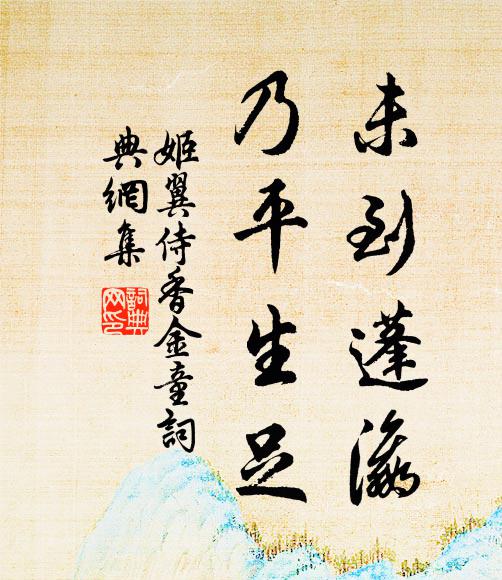 未到蓬瀛
乃平生足
姬翼侍香金童詞
典網集
詞典
网印